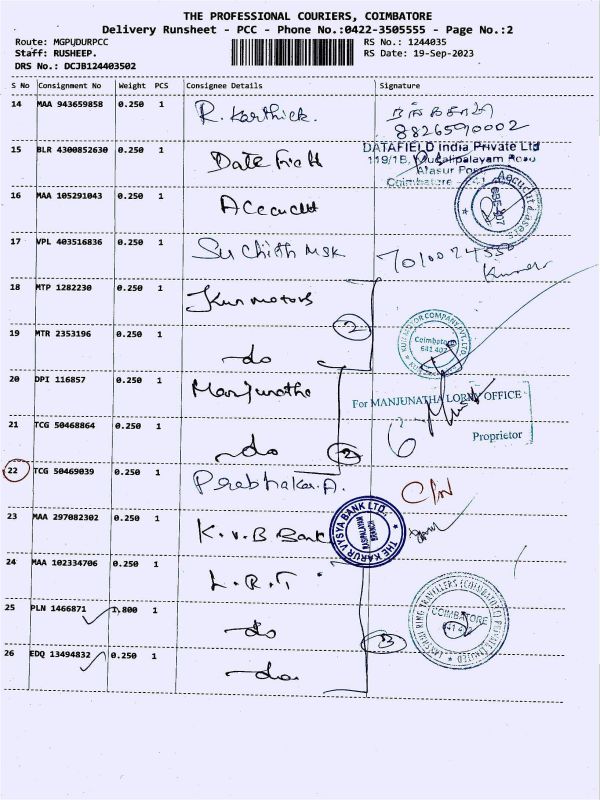 THE PROFESSIONAL COURIERS, COIMBATORE
Delivery Runsheet - PCC - Phone No.:0422-3505555 - Page No.:2
Route: MGPUDURPCC
RS No.: 1244035
Staff: RUSHEEP.
RS Date: 19-Sep-2023
DRS No.: DCJB124403502
S No Consignment No Weight PCS Consignee Details Signature
14 MAA 943659858 0.250 1 R. Karthick.
8826590002
15 BLR 4300852630 0.250 1 Date Field
DATAFIELD India Private Ltd
119/1B, Mudalipalayam Road
Arasur Post
Coimbatore
16 MAA 105291043 0.250 1 Accucut
17 VPL 403516836 0.250 1 Suchith MSK 7010024550
Kumar
18 MTP 1282230 0.250 1 Kun motors
2
Coimbatore
641 407
19 MTR 2353196 0.250 1 do
20 DPI 116857 0.250 1 Manjunatha
For MANJUNATHA LORRY OFFICE
Proprietor
21 TCG 50468864 0.250 1 do
2
22 TCG 50469039 0.250 1 Prabhakar.A.
23 MAA 297082302 0.250 1 K.V.B Bank
THE KARUR VYSYA BANK LTD.
BRANCH
24 MAA 102334706 0.250 1 L.R.T
25 PLN 1466871 1,800 1 do
3
COIMBATORE
26 EDQ 13494832 0.250 1 do